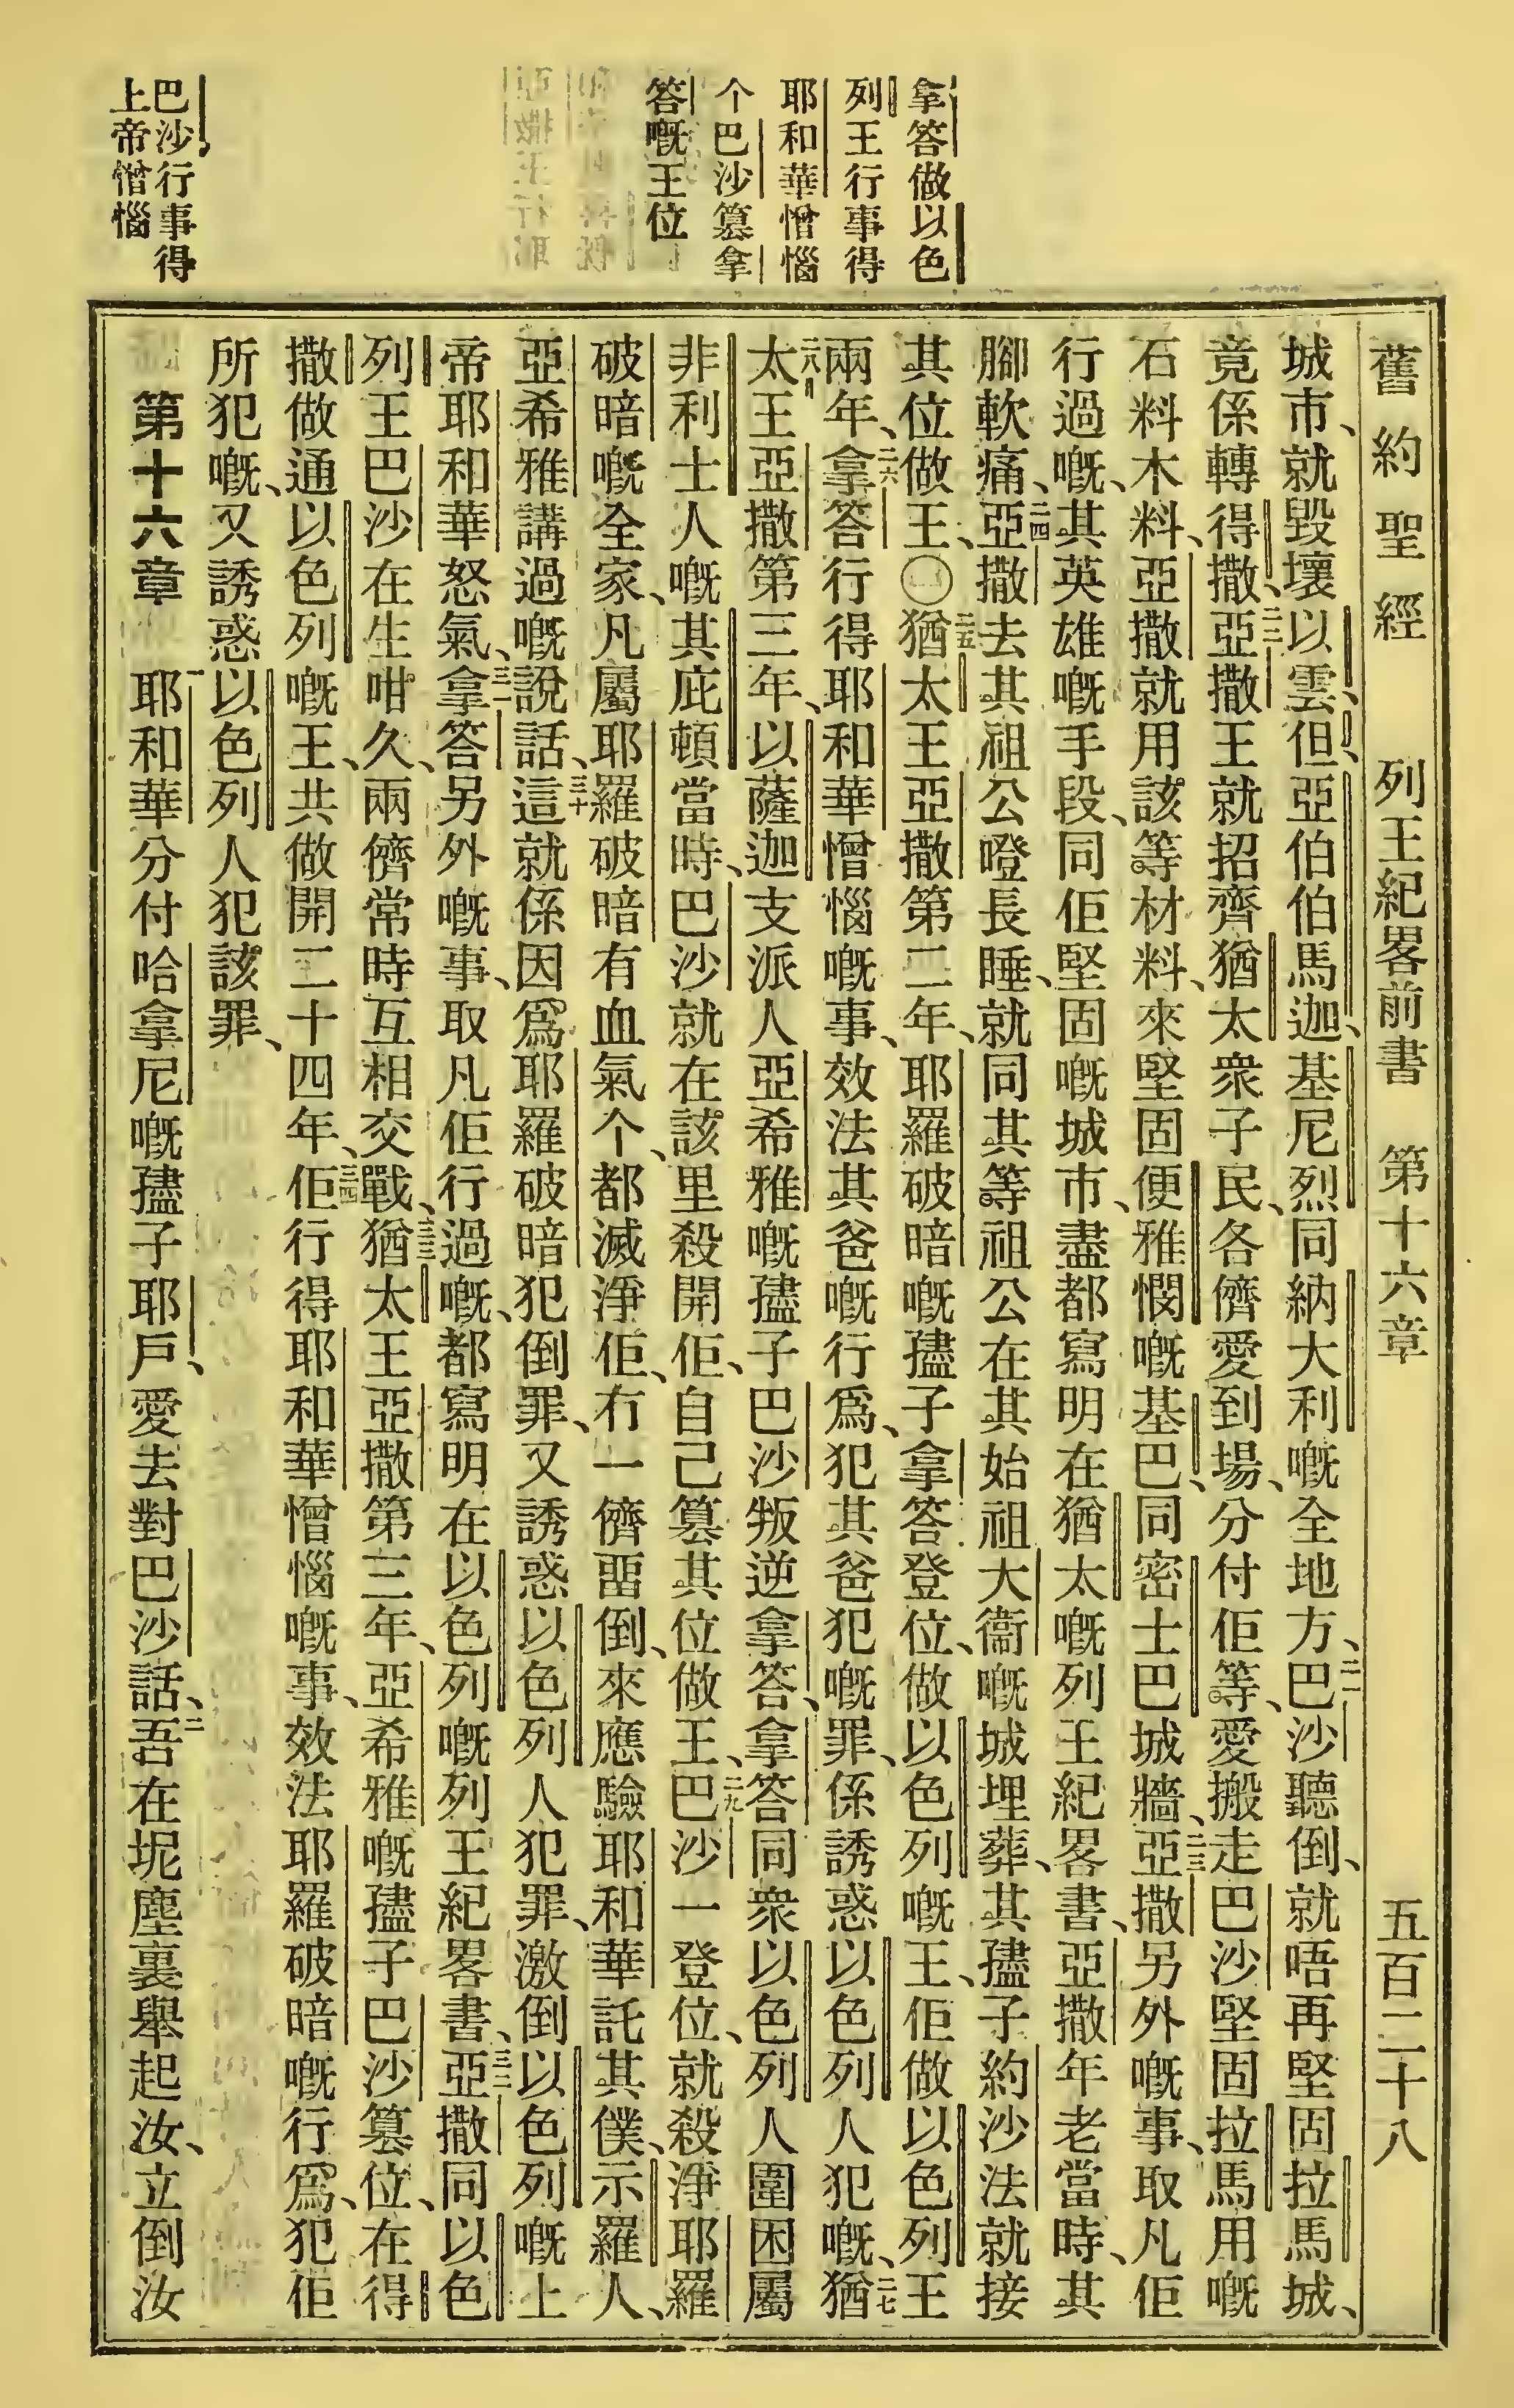 舊約聖經　列王紀畧前書　第十六章　五百二十八
拿答做以色
列王行事得
耶和華憎惱
个巴沙篡拿
答嘅王位
巴沙行事得
上帝憎惱
城市、就毀壞以雲、但、亞伯伯馬迦、基尼烈同納大利嘅全地方、二一巴沙聽倒、就唔再堅固拉馬城、
竟係轉得撒、二二亞撒王就招齊猶太衆子民、各儕愛到場、分付佢等、愛搬走巴沙堅固拉馬用嘅
石料木料、亞撒就用該等材料、來堅固便雅憫嘅基巴、同密士巴城牆、二三亞撒另外嘅事、取凡佢
行過嘅、其英雄嘅手段、同佢堅固嘅城市、盡都寫明在猶太嘅列王紀畧書、亞撒年老當時、其
腳軟痛、二四亞撒去其祖公嶝長睡、就同其等祖公在其始祖大衞嘅城埋葬、其𡥧子約沙法就接
其位做王、〇二五猶太王亞撒第二年、耶羅破暗嘅𡥧子拿答登位、做以色列嘅王、佢做以色列王
兩年、二六拿答行得耶和華憎惱嘅事、效法其爸嘅行爲、犯其爸犯嘅罪、係誘惑以色列人犯嘅、二七猶
太王亞撒第三年、以薩迦支派人亞希雅嘅𡥧子巴沙叛逆拿答、拿答同衆以色列人圍困屬
非利士人嘅其庇頓當時、巴沙就在該里殺開佢、自己篡其位做王、二九巴沙一登位、就殺淨耶羅
破暗嘅全家、凡屬耶羅破暗有血氣个、都滅淨佢、冇一儕畱倒、來應驗耶和華託其僕、示羅人、
亞希雅講過嘅說話、三十這就係因爲耶羅破暗犯倒罪、又誘惑以色列人犯罪、激倒以色列嘅上
帝耶和華怒氣、三一拿答另外嘅事、取凡佢行過嘅、都寫明在以色列嘅列王紀畧書、三二亞撒同以色
列王巴沙在生咁久、兩儕常時互相交戰、三三猶太王亞撒第三年、亞希雅嘅𡥧子巴沙篡位、在得
撒做通以色列嘅王、共做開二十四年、三四佢行得耶和華憎惱嘅事、效法耶羅破暗嘅行爲、犯佢
所犯嘅、又誘惑以色列人犯該罪、
第十六章　一耶和華分付哈拿尼嘅𡥧子耶戶、愛去對巴沙話、二吾在坭塵裏舉起汝、立倒汝